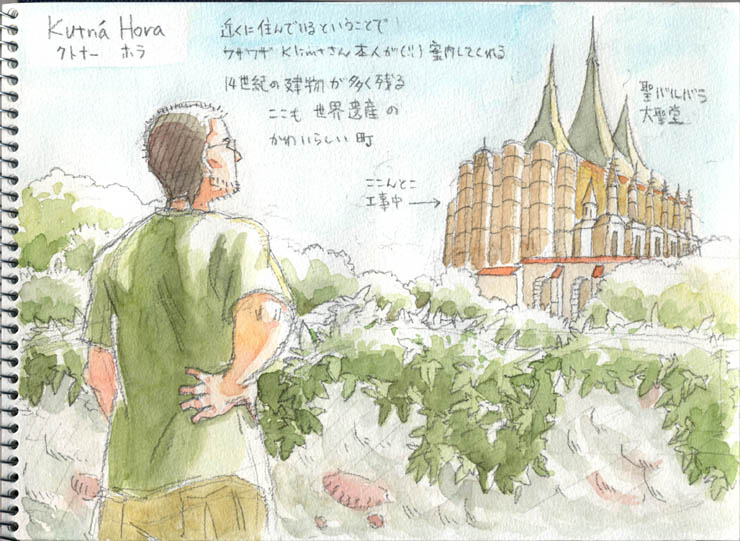 Kutná Hora
クトナー ホラ
近くに住んでいるということで
ワザワザ Klimtさん本人が(!!)案内してくれる
14世紀の建物が多く残る
ここも 世界遺産の
かわいらしい町
聖バルバラ
大聖堂
ここんとこ
工事中 →